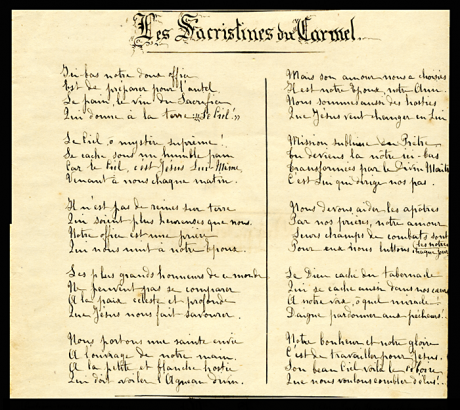 Les Sacristines du Carmel.
Ici-bas notre doux office
Est de préparer pour l'autel
Le pain, le vin du Sacrifice
Qui donne à la terre : « le Ciel. »
Le Ciel, ô mystère suprême !
Se cache sous un humble pain
Car le Ciel, c'est Jésus Lui-Même,
Venant à nous chaque matin.
Il n'est pas de reines sur terre
Qui soient plus heureuses que nous.
Notre office est une prière
Qui nous unit à notre Epoux.
Les plus grands honneurs de ce monde
Ne peuvent pas se comparer
A la paix céleste et profonde
Que Jésus nous fait savourer.
Nous portons une sainte envie
A l'ouvrage de notre main.
A la petite et blanche hostie
Qui doit voiler l'Agneau divin.
Mais son amour nous a choisies
Il est notre Epoux, notre Ami.
Nous sommes aussi des hosties
Que Jésus veut changer en Lui
Mission sublime du Prêtre
Tu deviens la nôtre ici-bas
Transformées par le Divin Maître
C'est Lui qui dirige nos pas.
Nous devons aider les apôtres
Par nos prières, notre amour
Leurs champs de combats sont les nôtres
Pour eux nous luttons chaque jour
Le Dieu caché du tabernacle
Qui se cache aussi dans nos cœurs
A notre voix, ô quel miracle !
Daigne pardonner aux pécheurs !
Notre bonheur et notre gloire
C'est de travailler pour Jésus.
Son beau Ciel voilà le ciboire
Que nous voulons combler d'élus !